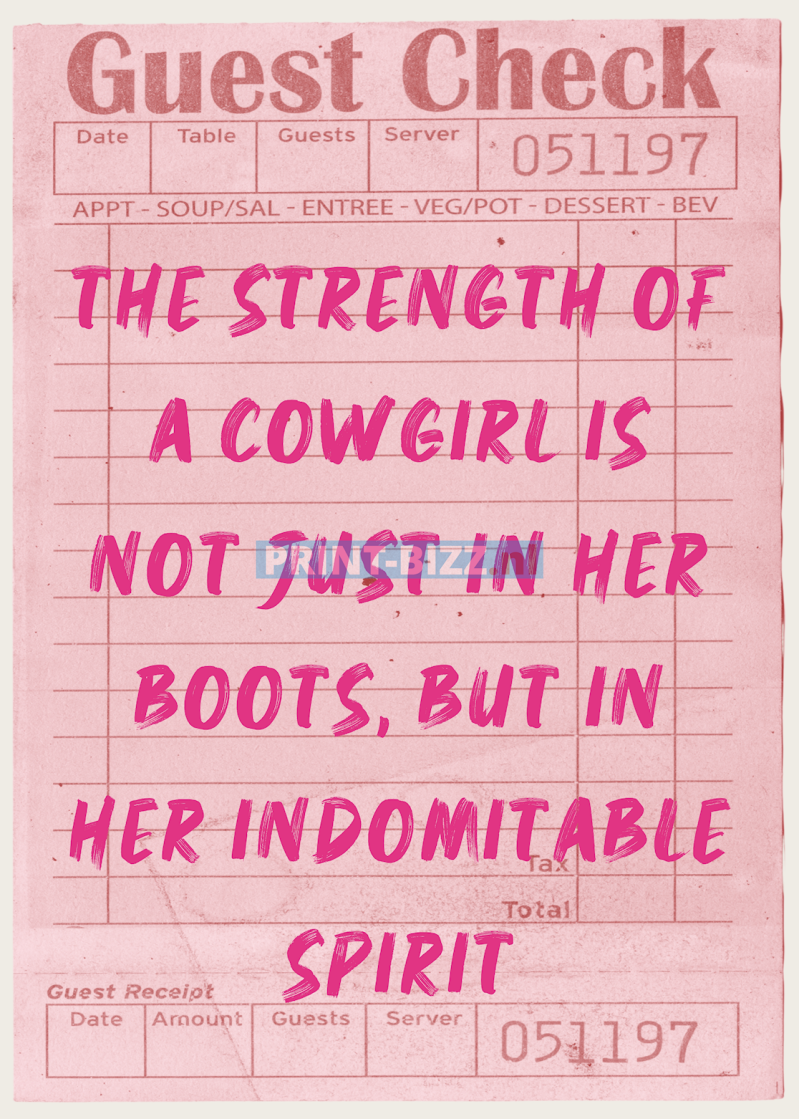 Guest Check
Date Table Guests Server 051197
APPT - SOUP/SAL - ENTREE - VEG/POT - DESSERT - BEV
THE STRENGTH OF
A COWGIRL IS
NOT JUST IN HER
PRINT-BIZZ.nl
BOOTS, BUT IN
HER INDOMITABLE
Tax
Total
SPIRIT
Guest Receipt
Date Amount Guests Server 051197